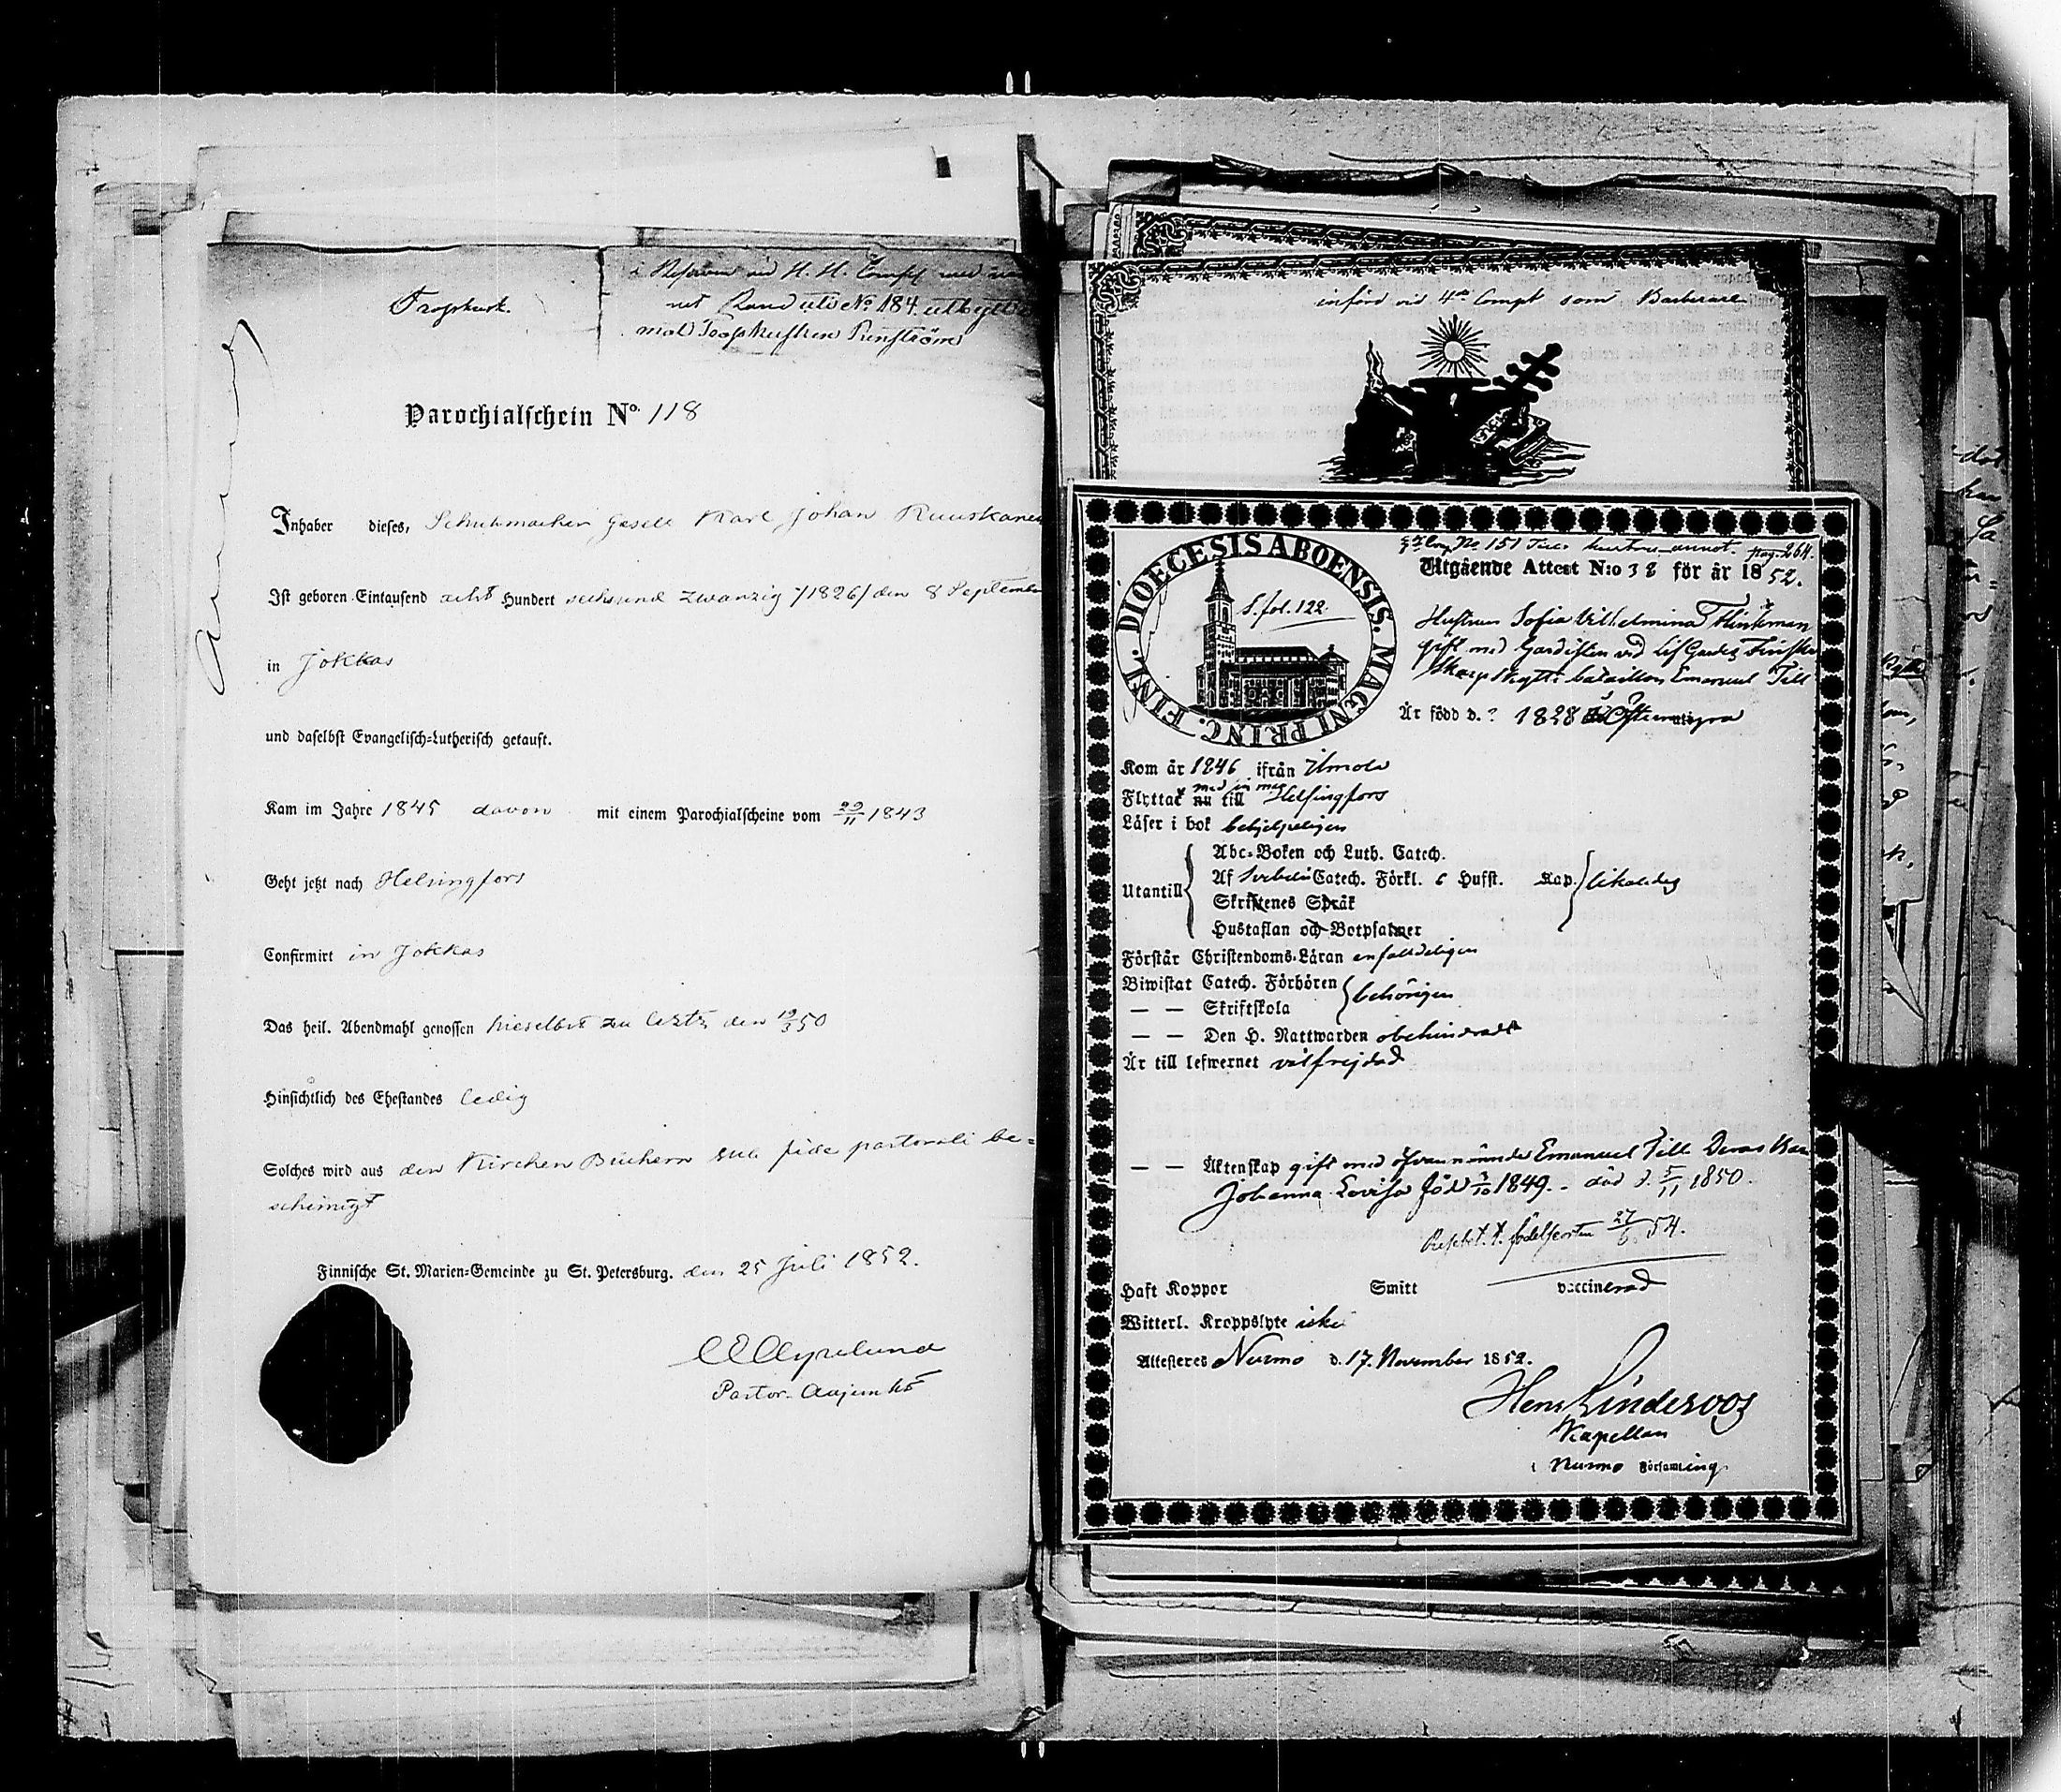 Tropskusk.
net Rand utö No 184. utbytt
Parochialschein No. 118
Inhaber dieses, Schuhmacher Gesell Karl Johan Ruuskanen
Ist geboren Eintausend acht Hundert sechsund zwanzig /1826/ den 8 September
in Jokkas
und daselbst Evangelisch-Lutherisch getauft.
Kam im Jahre 1845 davon mit einem Parochialscheine vom 29/11 1843
Geht jetzt nach Helsingfors
Confirmirt in Jokkas
Das heil. Abendmahl genossen hieselbst zu letzt den 19/3 50
Hinsichtlich des Ehestandes ledig
Solches wird aus den Kirchen Büchern sub fide pastorali be-
scheinigt
Finnische St. Marien-Gemeinde zu St. Petersburg. den 25 Juli 1852.
Pastor-Adjunkt
införd vid 4de Compt som Barberare
No 151 pag. 264.
DIOECESIS ABOENSIS. MAGNI PRINC. FINL.
S. fol. 122.
Utgående Attest N:o 38 för år 1852.
Hustrun Sofia Vilhelmina Flinkman
gift med Gardisten vid LifGardets Finska
Skarpskytte bataillon Emanuel Till
År född d. ? 1828 i Östermyra
Kom år 1846 ifrån Ilmola
med sin man
Flyttat nu till Helsingfors
Läser i bok behjelpeligen
Abc-Boken och Luth. Catech.
Utantill Af Svebelii Catech. Förkl. 6 Hufst. Kap. likaledes
Skriftenes Språk
Hustaflan och Botpsalmer
Förstår Christendoms-Läran enfaldeligen
Biwistat Catech. Förhören behörigen
— — Skriftskola
— — Den H. Nattwarden obehindradt
Är till lefwernet välfrejdad
— — Äktenskap gift med ofvannämnde Emanuel Till Deras Barn
Johanna Lovisa född 3/10 1849. - död d. 5/11 1850.
födelseorten 27/6 54.
Haft Koppor Smitt vaccinerad
Witterl. Kroppslyte icke
Attesteres Nurmo d. 17. November 1852.
Henr Linderoos
Kapellan
i Nurmo Församling